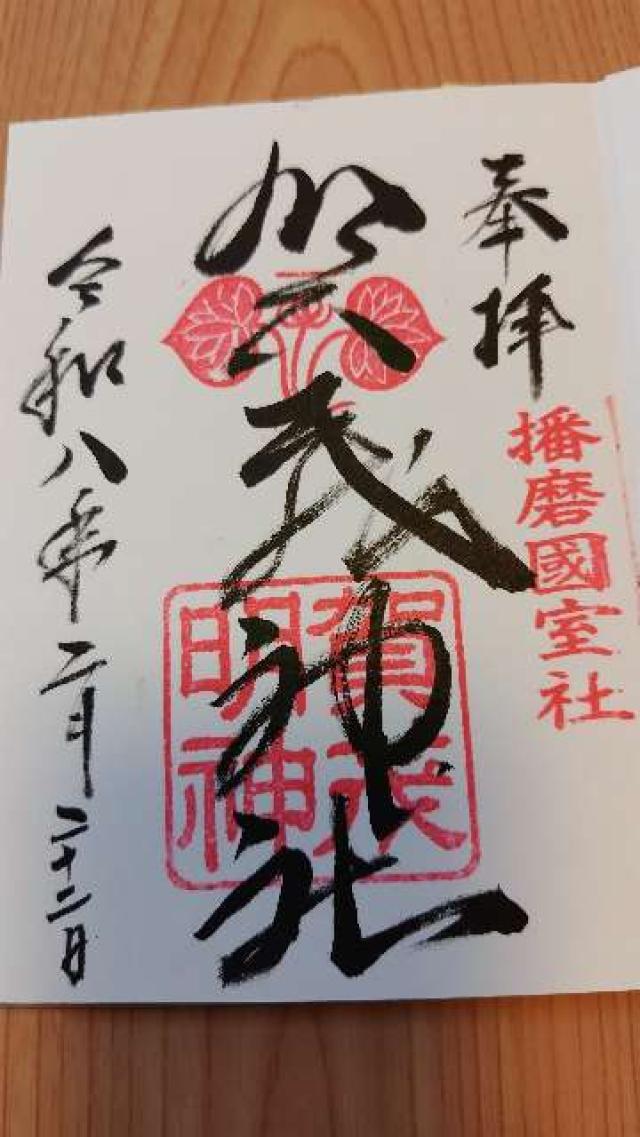 奉拝
播磨國室社
加茂神社
賀茂
明神
令和八年二月二十二日